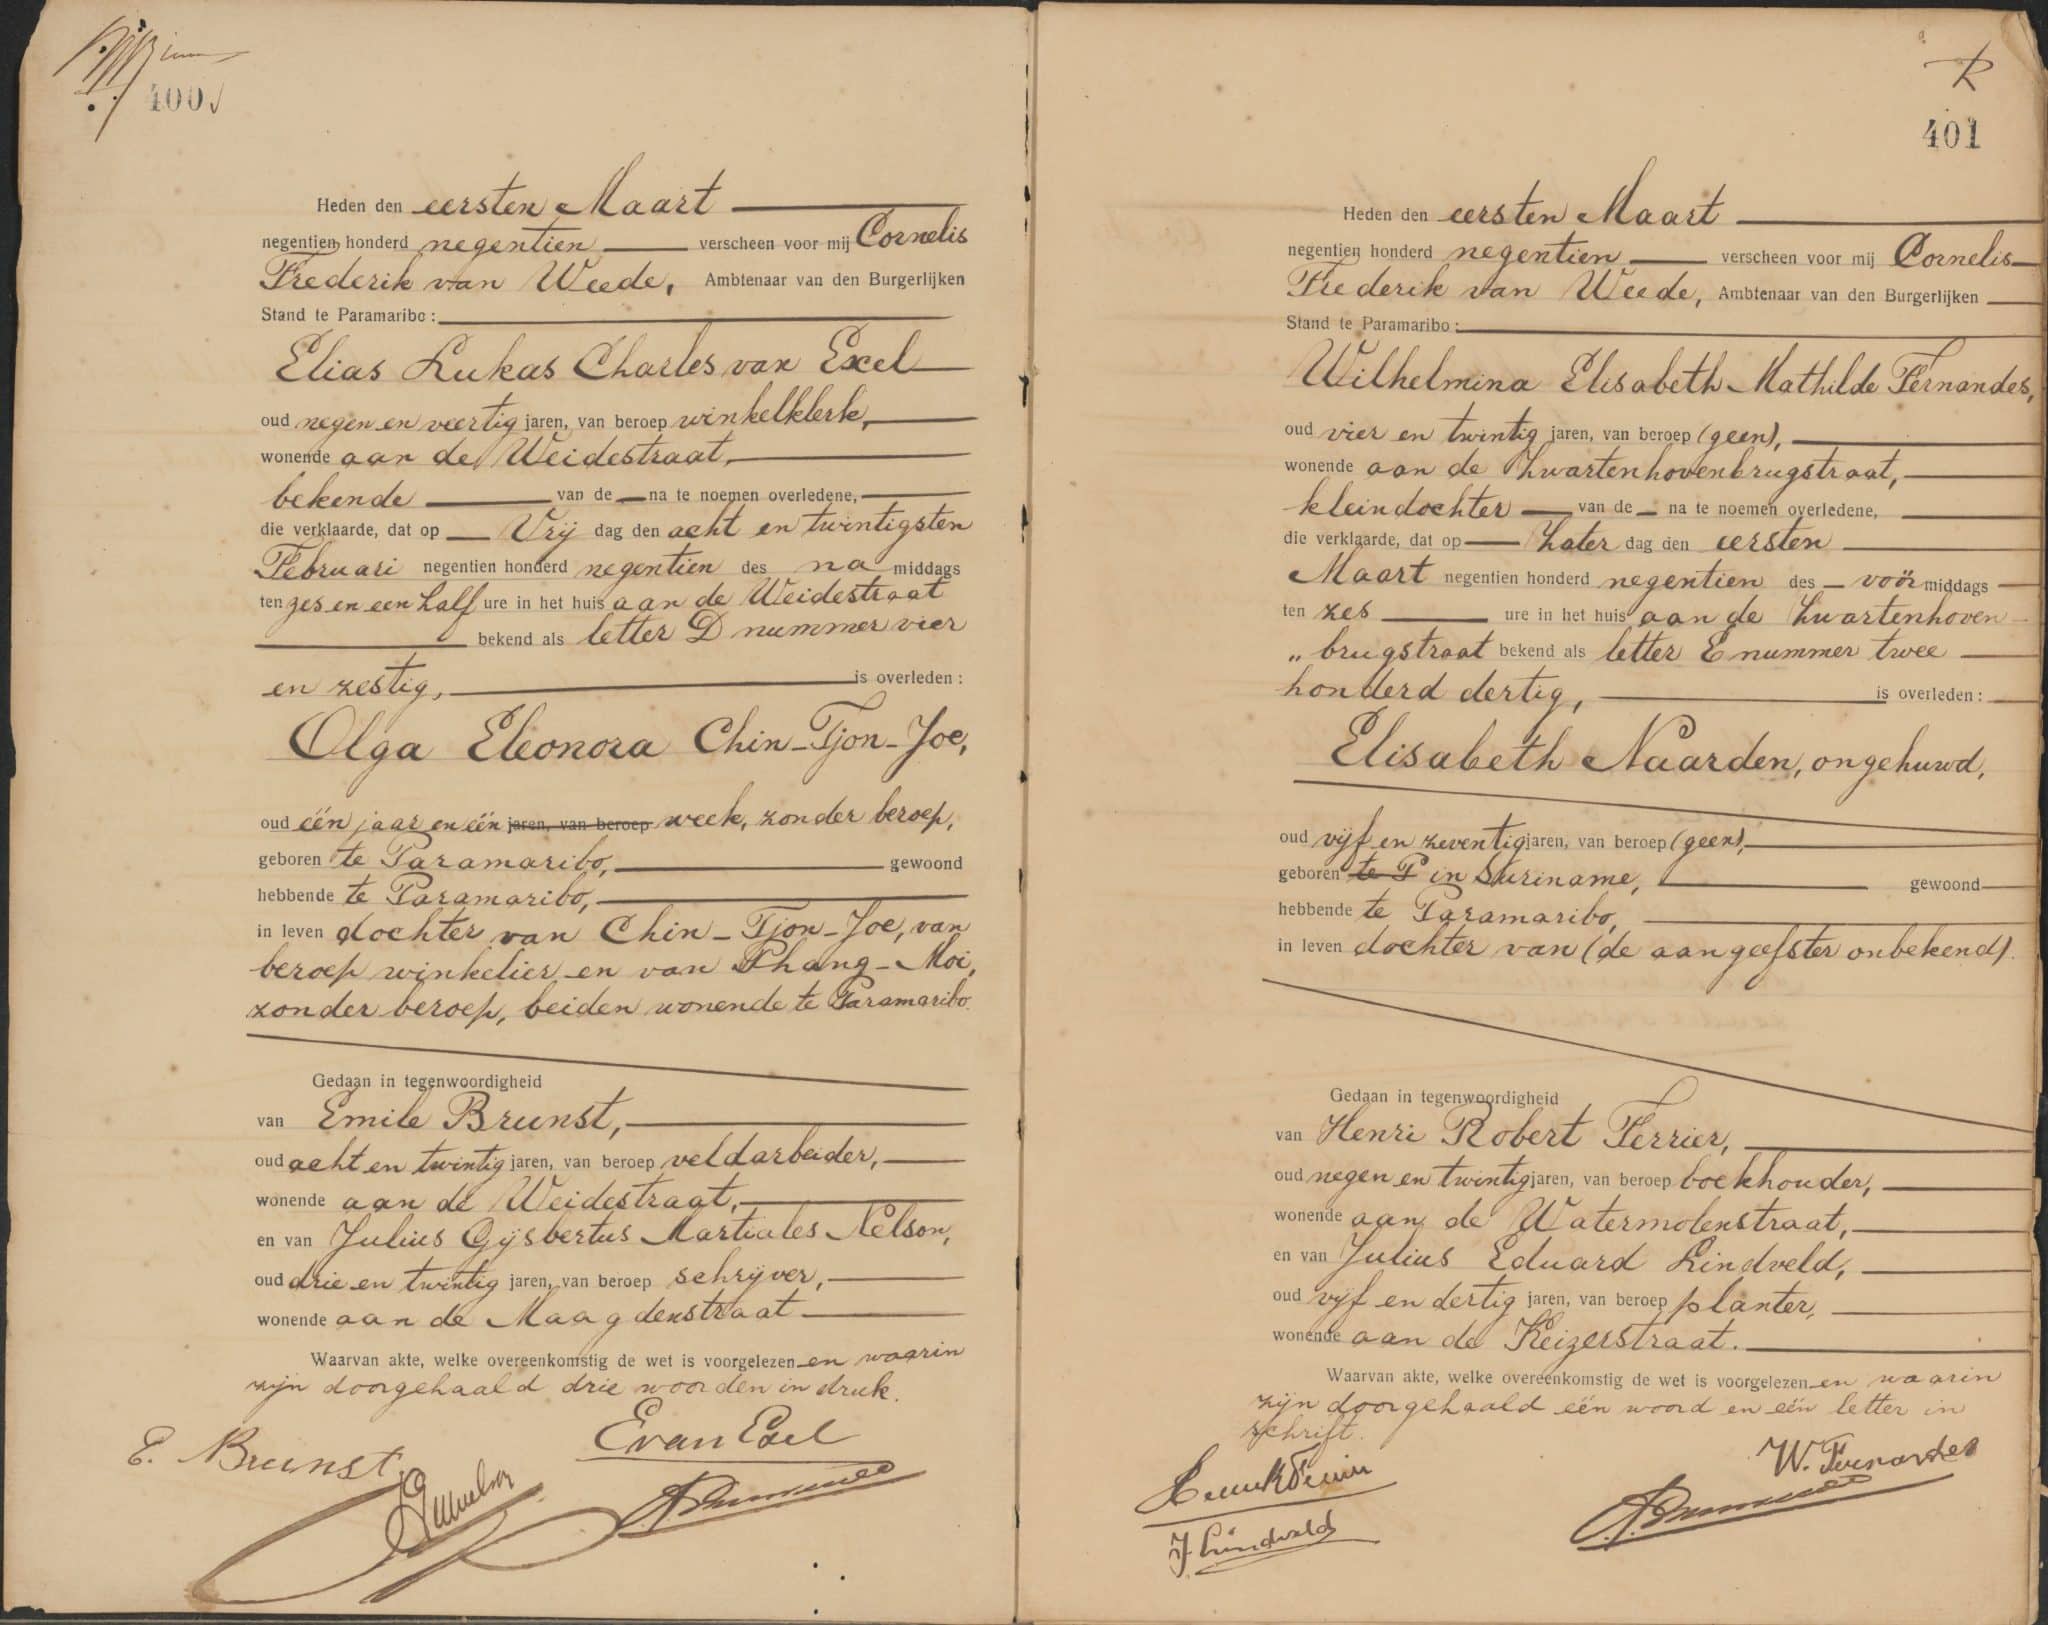 400
Heden den eersten Maart
negentien honderd negentien verscheen voor mij Cornelis
Frederik van Weede, Ambtenaar van den Burgerlijken
Stand te Paramaribo:
Elias Lukas Charles van Excel
oud negen en veertig jaren, van beroep winkelklerk,
wonende aan de Weidestraat,
bekende van de na te noemen overledene,
die verklaarde, dat op Vrij dag den acht en twintigsten
Februari negentien honderd negentien des na middags
ten zes en een half ure in het huis aan de Weidestraat
bekend als letter D nummer vier
en zestig, is overleden:
Olga Eleonora Chin-Tjon-Joe,
oud één jaar en één jaren, van beroep week, zonder beroep,
geboren te Paramaribo, gewoond
hebbende te Paramaribo,
in leven dochter van Chin-Tjon-Joe, van
beroep winkelier en van Phang-Moi,
zonder beroep, beiden wonende te Paramaribo.
Gedaan in tegenwoordigheid
van Emile Brunst,
oud acht en twintig jaren, van beroep veldarbeider,
wonende aan de Weidestraat,
en van Julius Gijsbertus Martiales Nelson,
oud drie en twintig jaren, van beroep schrijver,
wonende aan de Maagdenstraat
Waarvan akte, welke overeenkomstig de wet is voorgelezen en waarin
zijn doorgehaald drie woorden in druk.
E van Exel
E. Brunst
401
Heden den eersten Maart
negentien honderd negentien verscheen voor mij Cornelis
Frederik van Weede, Ambtenaar van den Burgerlijken
Stand te Paramaribo:
Wilhelmina Elisabeth Mathilde Fernandes,
oud vier en twintig jaren, van beroep (geen),
wonende aan de Zwartenhovenbrugstraat,
kleindochter van de na te noemen overledene,
die verklaarde, dat op Zater dag den eersten
Maart negentien honderd negentien des voor middags
ten zes ure in het huis aan de Zwartenhoven
„ brugstraat bekend als letter E nummer twee
honderd dertig, is overleden:
Elisabeth Naarden, ongehuwd,
oud vijf en zeventig jaren, van beroep (geen),
geboren te P in Suriname, gewoond
hebbende te Paramaribo,
in leven dochter van (de aangeefster onbekend).
Gedaan in tegenwoordigheid
van Henri Robert Ferrier,
oud negen en twintig jaren, van beroep boekhouder,
wonende aan de Watermolenstraat,
en van Julius Eduard Lindveld,
oud vijf en dertig jaren, van beroep planter,
wonende aan de Keizerstraat.
Waarvan akte, welke overeenkomstig de wet is voorgelezen en waarin
zijn doorgehaald één woord en één letter in
schrift.
W. Fernandes
J. Lindveld